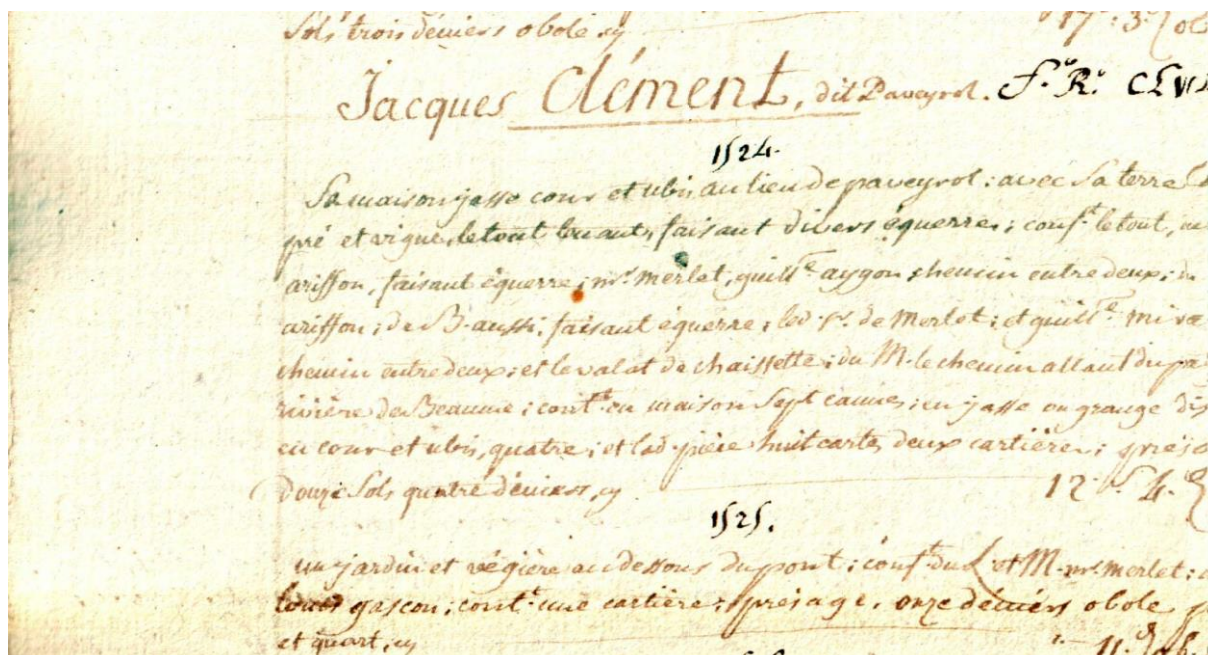 Sols trois déniers obole cy 17 : 3.
Jacques Clément, dit Paveyrol. f.° R.° CLVI
1524.
Sa maison jasse cour et ubis au lieu de paveyrol ; avec Sa terre
pré et vigne, le tout tenant, faisant divers équerre ; conf.t le tout,
ariffon, faisant équerre ; m.r merlet, guill.e aygon chemin entre deux ;
ariffon ; de B. aussi, faisant équerre ; led. s.r de Merlet ; et guill.e
chemin entre deux ; et le valat de chaissette ; du M. le chemin allant du
rivière de Beaume ; cont.t en maison Sept cannes ; en jasse ou grange dis
en cour et ubis, quatre ; et lad. pièce huit cartes deux cartière ;
douze Sols quatre déniers, cy 12 s 4.
1525.
un jardin et végière au dessous du pont ; conf.t du L et M. m.r merlet ;
louis gascon ; cont.t une cartière ; présage, onze déniers obole
et quart, cy 11.